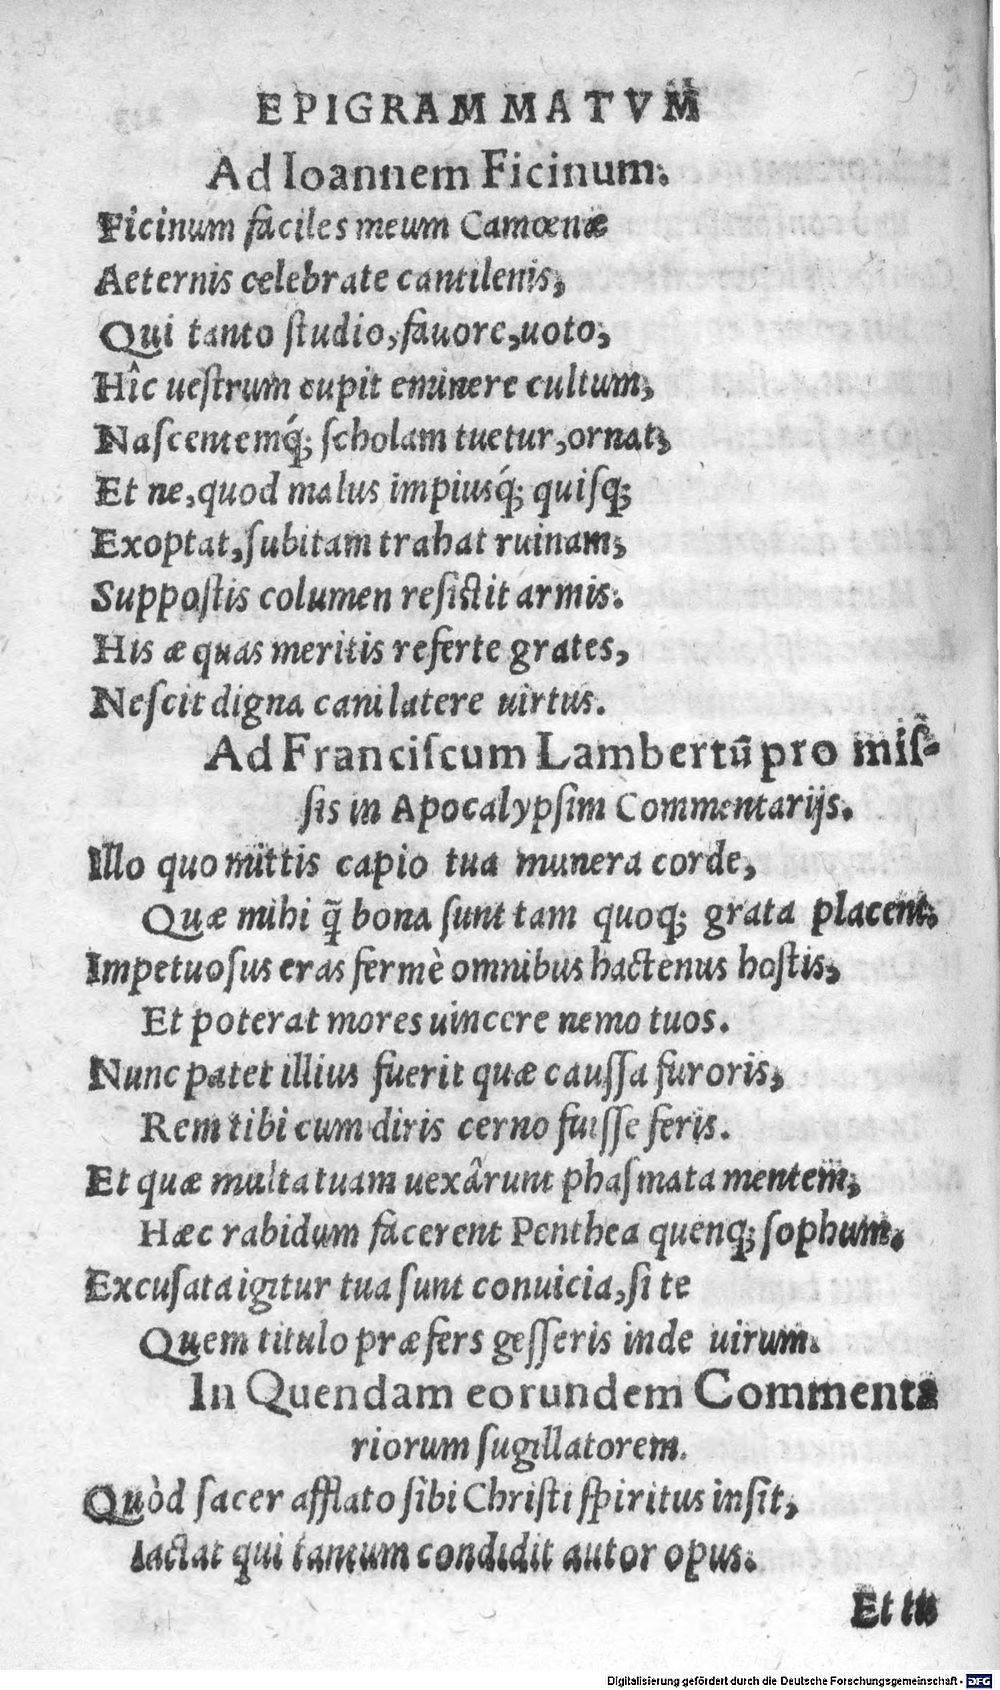 EPIGRAMMATVM
Ad Ioannem Ficinum.
Ficinum faciles meum Camœnæ
Aeternis celebrate cantilenis,
Qui tanto ſtudio, fauore, uoto,
Hîc ueſtrum cupit eminere cultum,
Naſcentemq́; ſcholam tuetur, ornat,
Et ne, quod malus impiusq́; quiſq;
Exoptat, ſubitam trahat ruinam,
Suppoſtis columen reſiſtit armis.
His æquas meritis referte grates,
Neſcit digna cani latere uirtus.
Ad Franciſcum Lambertū pro miſ-
ſis in Apocalypſim Commentarijs.
Illo quo mittis capio tua munera corde,
Quæ mihi q̄ bona ſunt tam quoq; grata placent.
Impetuoſus eras fermè omnibus hactenus hoſtis,
Et poterat mores uincere nemo tuos.
Nunc patet illius fuerit quæ cauſſa furoris,
Rem tibi cum diris cerno fuiſſe feris.
Et quæ multa tuam uexârunt phaſmata mentem,
Hæc rabidum facerent Penthea quenq; ſophum.
Excuſata igitur tua ſunt conuicia, ſi te
Quem titulo præfers geſſeris inde uirum.
In Quendam eorundem Commenta
riorum ſugillatorem.
Quòd ſacer afflato ſibi Chriſti ſpiritus inſit,
Iactat qui tantum condidit autor opus.
Et tu
Digitalisierung gefördert durch die Deutsche Forschungsgemeinschaft - DFG